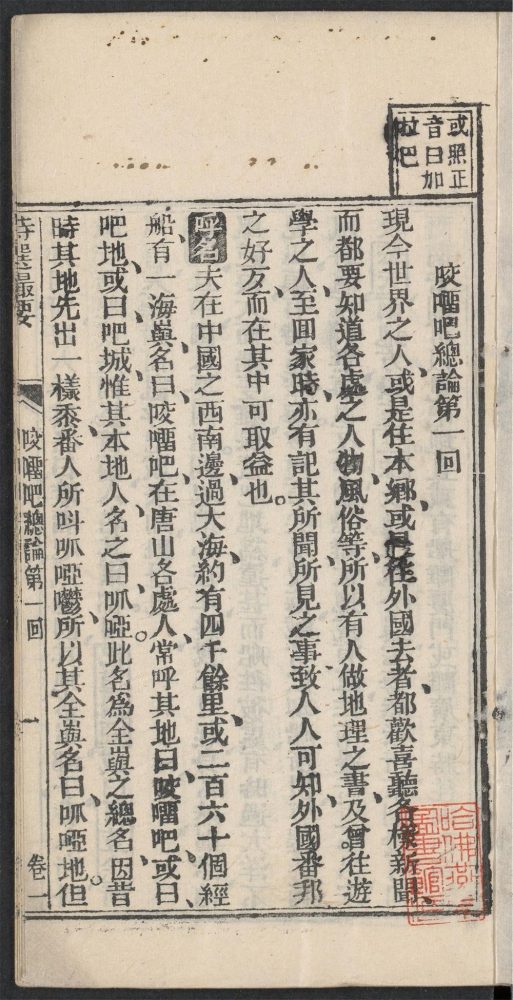 或照正
音曰加
拉吧
咬𠺕吧總論第一回
現今世界之人、或是住本鄉、或是往外國去者、都歡喜聽各樣新聞、
而都要知道各處之人物風俗等、所以有人做地理之書、及曾往遊
學之人、至囬家時、亦有記其所聞所見之事、致人人可知外國番邦
之好歹、而在其中可取益也。
呼名 夫在中國之西南邊、過大海、約有四千餘里、或二百六十個經
船、有一海㠘、名曰咬𠺕吧、在唐山各處人、常呼其地曰咬𠺕吧、或曰
吧地、或曰吧城、惟其本地人、名之曰呱啞。此名為全㠘之總名、因昔
時其地先出一樣黍、番人所呌呱啞鬱、所以其全㠘名曰呱啞地。但
咬𠺕吧總論第一回
一
卷一